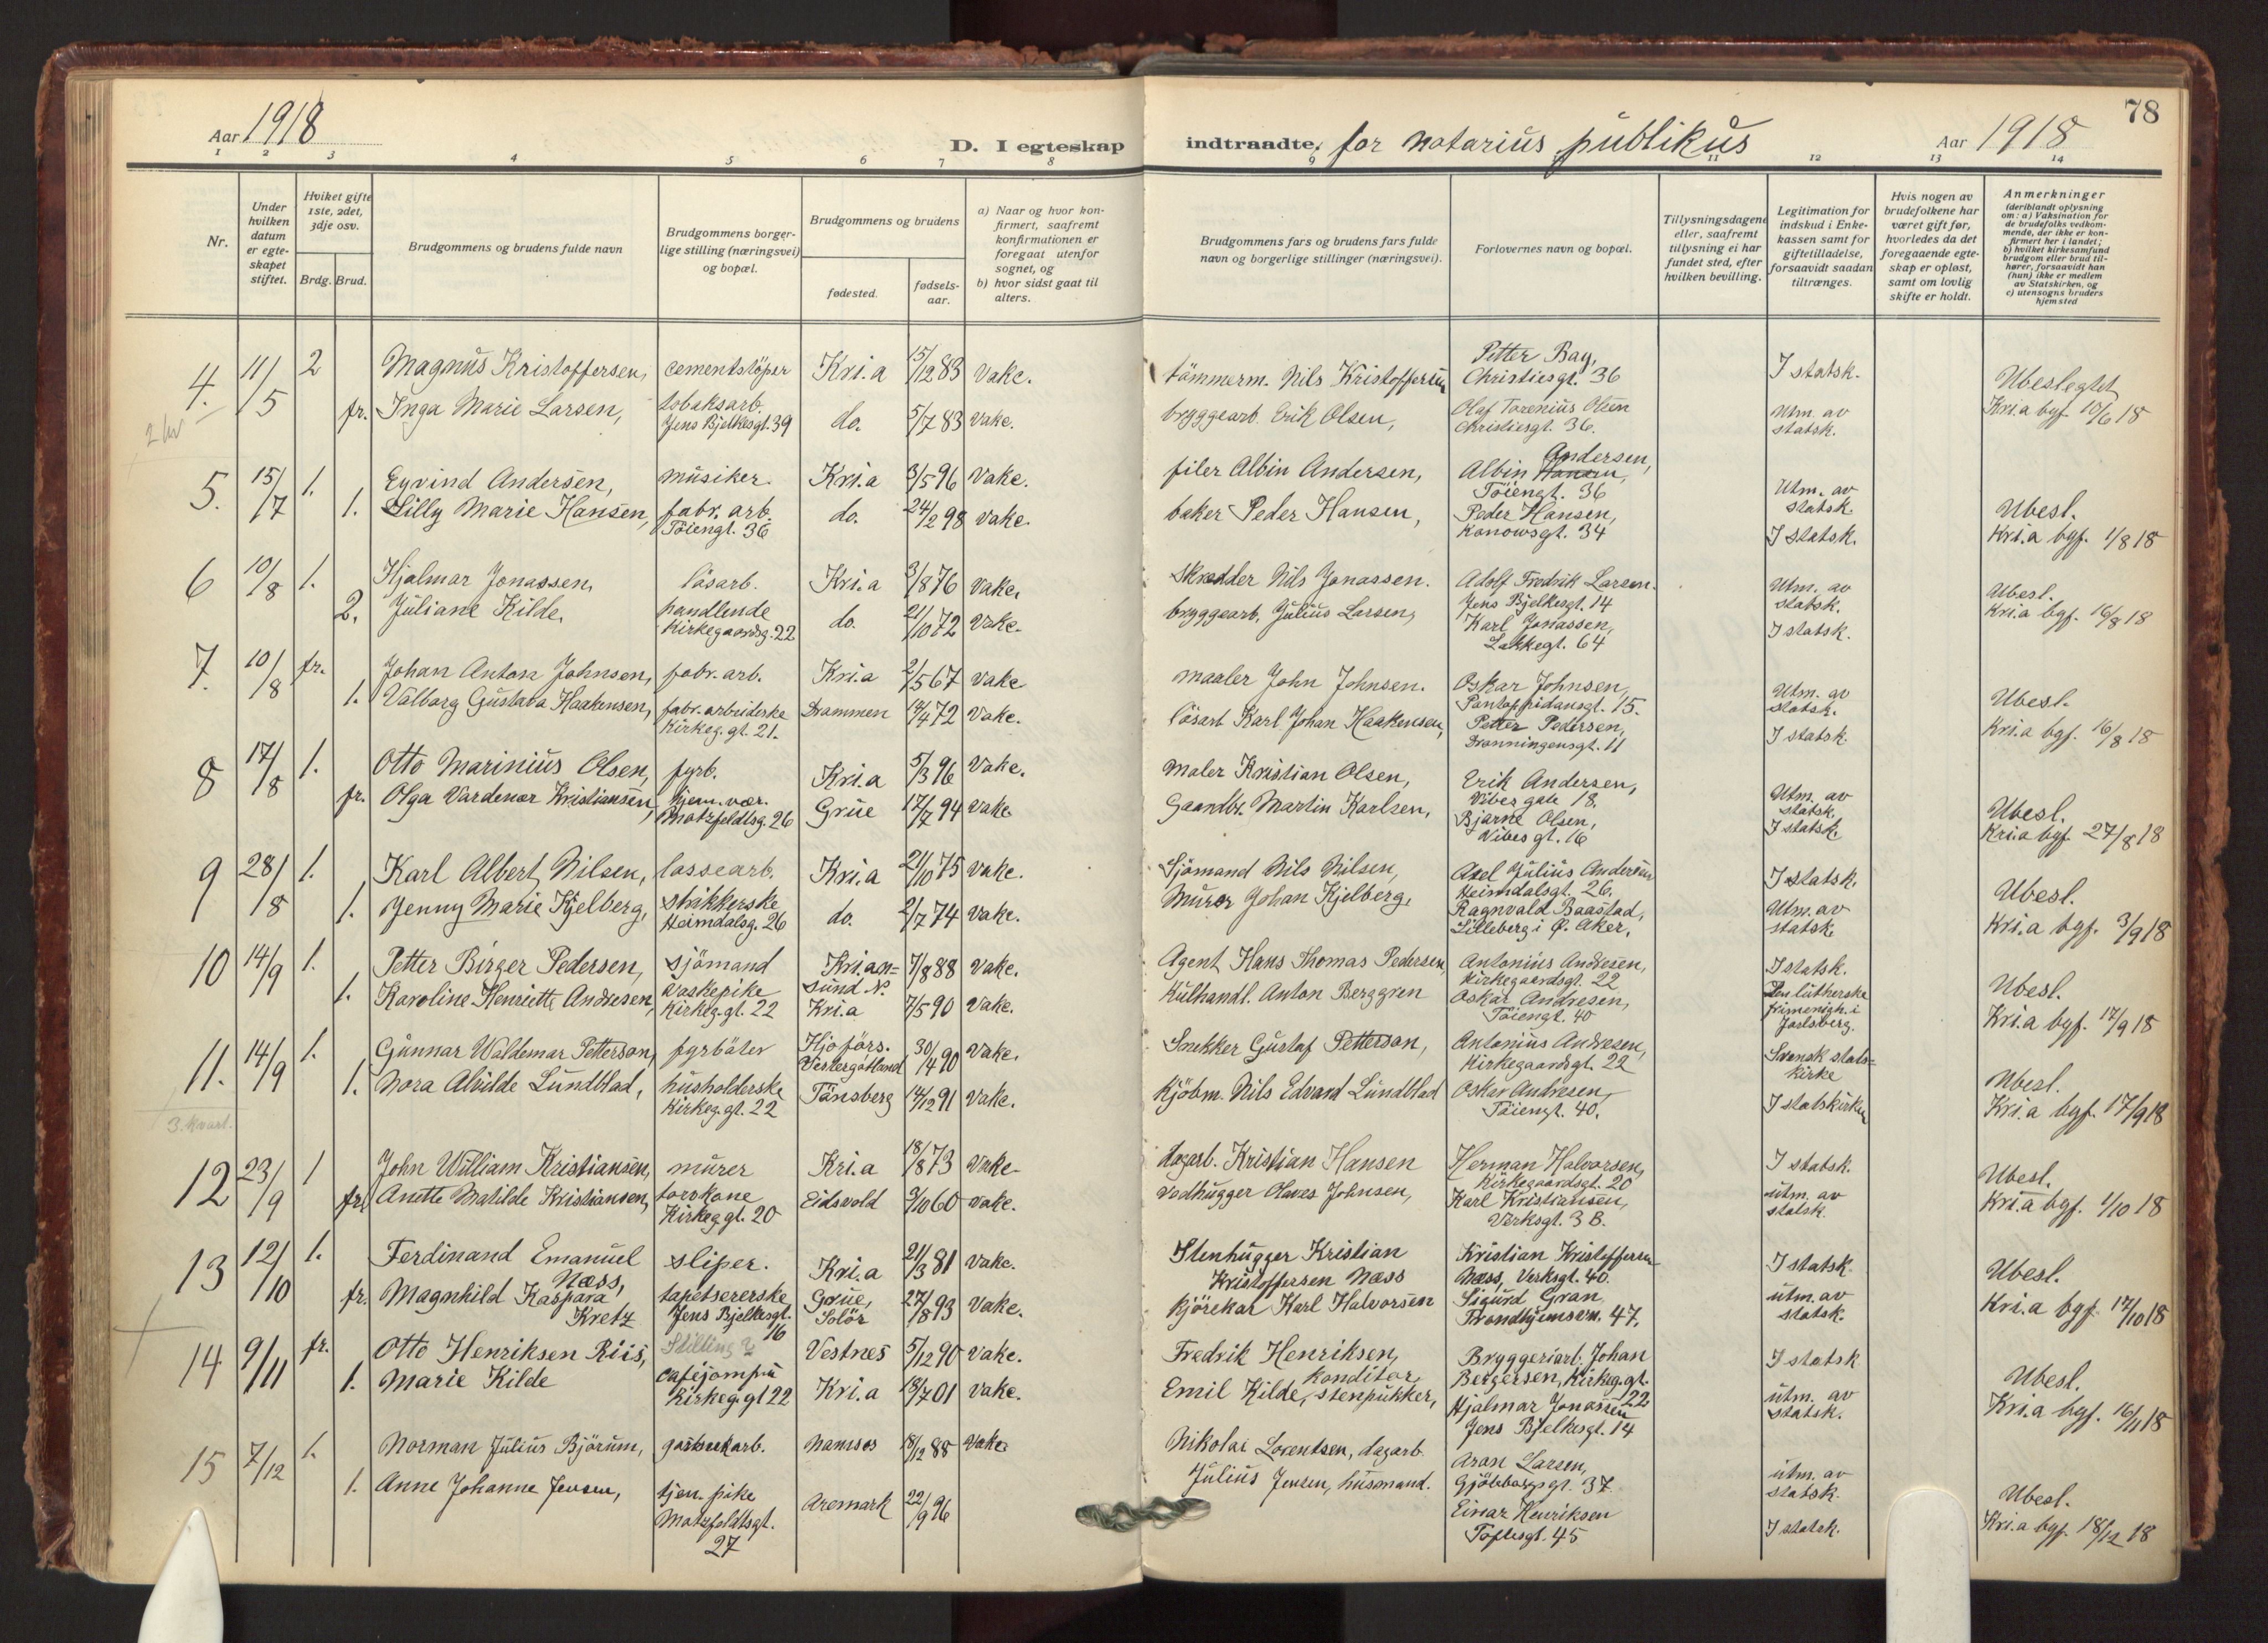 78
Aar 1918
D. I egteskap indtraadte, for notarius publikus
Aar 1918
1 2 3 4 5 6 7 8 9 11 12 13 14
Nr.
Under hvilken datum er egteskapet stiftet.
Hviket gifte 1ste, 2det, 3dje osv.
Brdg. Brud.
Brudgommens og brudens fulde navn
Brudgommens borgerlige stilling (næringsvei) og bopæl.
Brudgommens og brudens
fødested.
fødselsaar.
a) Naar og hvor konfirmert, saafremt konfirmationen er foregaat utenfor sognet, og
b) hvor sidst gaat til alters.
Brudgommens fars og brudens fars fulde navn og borgerlige stillinger (næringsvei).
Forlovernes navn og bopæl.
Tillysningsdagene eller, saafremt tillysning ei har fundet sted, efter hvilken bevilling.
Legitimation for indskud i Enkekassen samt for giftetilladelse, forsaavidt saadan tiltrænges.
Hvis nogen av brudefolkene har været gift før, hvorledes da det foregaaende egteskap er opløst, samt om lovlig skifte er holdt.
Anmerkninger
(deriblandt oplysning om: a) Vaksination for de brudefolks vedkommende, der ikke er konfirmert her i landet;
b) hvilket kirkesamfund brudgom eller brud tilhører, forsaavidt han (hun) ikke er medlem av Statskirken, og
c) utensogns bruders hjemsted
4. 11/5 2 Magnus Kristoffersen, cementstöper Kri.a 15/12 83 vakc. tömmerm. Nils Kristoffersen Petter Bay, Christiesgt. 36 I statsk. Ubeslegtet
fr. Inga Marie Larsen, tobaksarb. Jens Bjelkesgt. 39 do. 5/7 83 vakc. bryggearb. Erik Olsen, Olaf Torenius Olsen Christiesgt. 36. Utm. av statsk. Kri.a bgf. 10/6 18
5. 15/7 1. Eyvind Andersen, musiker. Kri.a 3/5 96 vakc. filer Albin Andersen, Albin Hansen, Andersen, Töiengt. 36 Utm. av statsk. Ubesl.
1. Lilly Marie Hansen, fabr. arb. Töiengt. 36 do. 24/2 98 vakc. baker Peder Hansen, Peder Hansen, Kanowsgt. 34 I statsk. Kri.a bgf. 1/8 18
6 10/8 1. Hjalmar Jonassen, lösarb. Kri.a 3/8 76 vakc. Skrædder Nils Jonassen. Adolf Fredrik Larsen. Jens Bjelkesgt. 14 Utm. av statsk. Ubesl.
2. Juliane Kilde, handlende Kirkegaardsg. 22 do. 21/10 72 vakc. bryggearb. Julius Larsen, Karl Jonassen, Lakkegt. 64 I statsk. Kri.a bgf. 16/8 18
7. 10/8 fr. Johan Anton Johnsen, fabr. arb. Kri.a 2/5 67 vakc maaler John Johnsen. Oskar Johnsen, Pontoppidansgt. 15. Utm. av statsk. Ubesl.
1. Valborg Gustava Haakensen, fabr. arbeiderske Kirkeg. gt. 21. Drammen 19/4 72 vakc. lösarb Karl Johan Haakensen, Petter Pedersen, Dronningensgt. 11 I statsk. Kri.a bgf. 16/8 18
8 17/8 1. Otto Marinius Olsen, fyrb. Kri.a 5/3 96 vakc. maler Kristian Olsen, Erik Andersen, Vibes gate 18. Utm. av statsk. Ubesl.
fr. Olga Vardenar Kristiansen, hjem. vær. Motzfeldtsg. 26 Grue 17/7 94 vakc Gaardbr. Martin Karlsen, Bjarne Olsen, Vibes gt. 16 I statsk. Kri.a bgf. 27/8 18
9 28/8 1. Karl Albert Nilsen, lossearb. Kri.a 21/10 75 vakc. Sjömand Nils Nilsen, Axel Julius Andersen Heimdalsgt. 26. I statsk. Ubesl.
1. Jenny Marie Kjelberg, strikkerske Heimdalsg. 26 do. 2/7 74 vakc. Murer Johan Kjelberg, Ragnvald Baastad, Lilleberg i Ø. Aker. Utm. av statsk. Kri.a bgf. 3/9 18
10 14/9 1. Petter Birger Pedersen, sjömand Kri.an=sund N. 7/8 88 vakc. Agent Hans Thomas Pedersen, Antonius Andresen, Kirkegaardsgt. 22 I statsk. Ubesl.
1. Karoline Henriette Andresen, vaskepike Kirkeg. gt. 22 Kri.a 7/5 90 vakc. Kulhandl. Anton Berggren Oskar Andresen, Töiengt. 40 Den lutherske frimenigh. i Jarlsberg. Kri.a bgf. 17/9 18
11. 14/9 1. Gunnar Waldemar Petterson, fyrböter Hjo förs. Vestergötland 30/4 90 vakc. Snekker Gustaf Petterson, Antonius Andresen, Kirkegaardsgt. 22 Svensk stats=kirke Ubesl.
1. Nora Alvilde Lundblad, husholderske Kirkeg. gt. 22 Tönsberg 14/12 91 vakc. Kjöbm. Nils Edvard Lundblad Oskar Andresen, Töiengt. 40. I statskirken Kri.a bgf. 17/9 18
3. kvart.
12 23/9 1 John William Kristiansen, murer Kri.a 18/8 73 vakc. dagarb. Kristian Hansen Herman Halvorsen, Kirkegaardsgt. 20 I statsk. Ubesl.
fr. Anette Matilde Kristiansen, torskone Kirkeg. gt. 20 Eidsvold 9/10 60 vakc. vedhugger Olaves Johnsen, Karl Kristiansen, Verksgt. 3 B. utm. av statsk. Kri.a bgf. 1/10 18
13 12/10 1. Ferdinand Emanuel Næss, sliper. Kri.a 21/3 81 vakc. Stenhugger Kristian Kristoffersen Næss Kristian Kristoffersen Næss, Verksgt. 40. I statsk. Ubesl.
fr. Magnhild Kaspara Kretz tapetsererske Jens Bjelkesgt. 16 Grue, Solör 27/8 93 vakc. Kjörekar Karl Halvorsen Sigurd Gran, Trondhjemsvn. 47. utm. av statsk. Kri.a bgf. 17/10 18
14 9/11 fr. Otto Henriksen Riis, Stilling? Vestnes 5/12 90 vakc. Fredrik Henriksen, Konditor, Bryggeriarb. Johan Bergersen, Kirkeg. gt. 22 I statsk Ubesl.
1. Marie Kilde cafejomfru Kirkeg. gt 22 Kri.a 18/7 01 vakc. Emil Kilde, stenpukker, Hjalmar Jonassen Jens Bjelkesgt. 14 utm. av statsk. Kri.a bgf. 16/11 18
15 7/12 1. Norman Julius Björum, gasverkarb. Namsos 18/12 88 vakc Nikolai Lorentsen, dagarb. Aron Larsen, Gjöteborgsgt. 37 utm. av statsk. Ubesl.
1. Anne Johanne Jensen, tjen. pike Motzfeldtsgt. 27 Aremark 22/9 96 Julius Jensen, husmand. Einar Henriksen Toftesgt. 45 I statsk. Kri.a bgf. 18/12 18